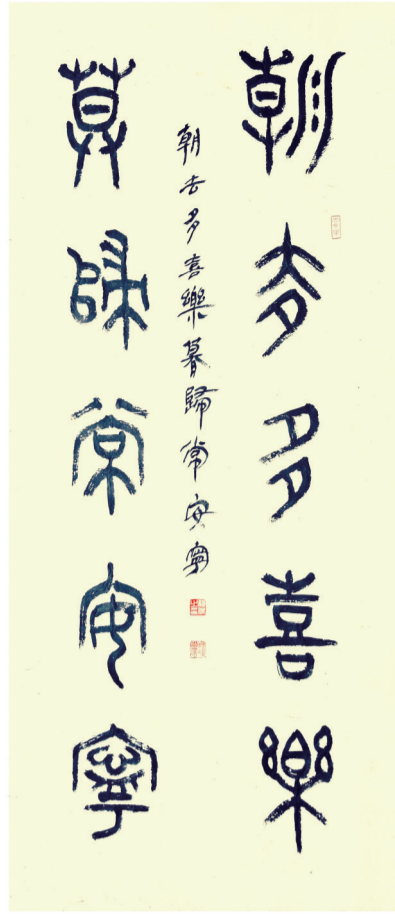 朝去多喜樂
朝去多喜樂暮歸常安寧
莫歸常安寧